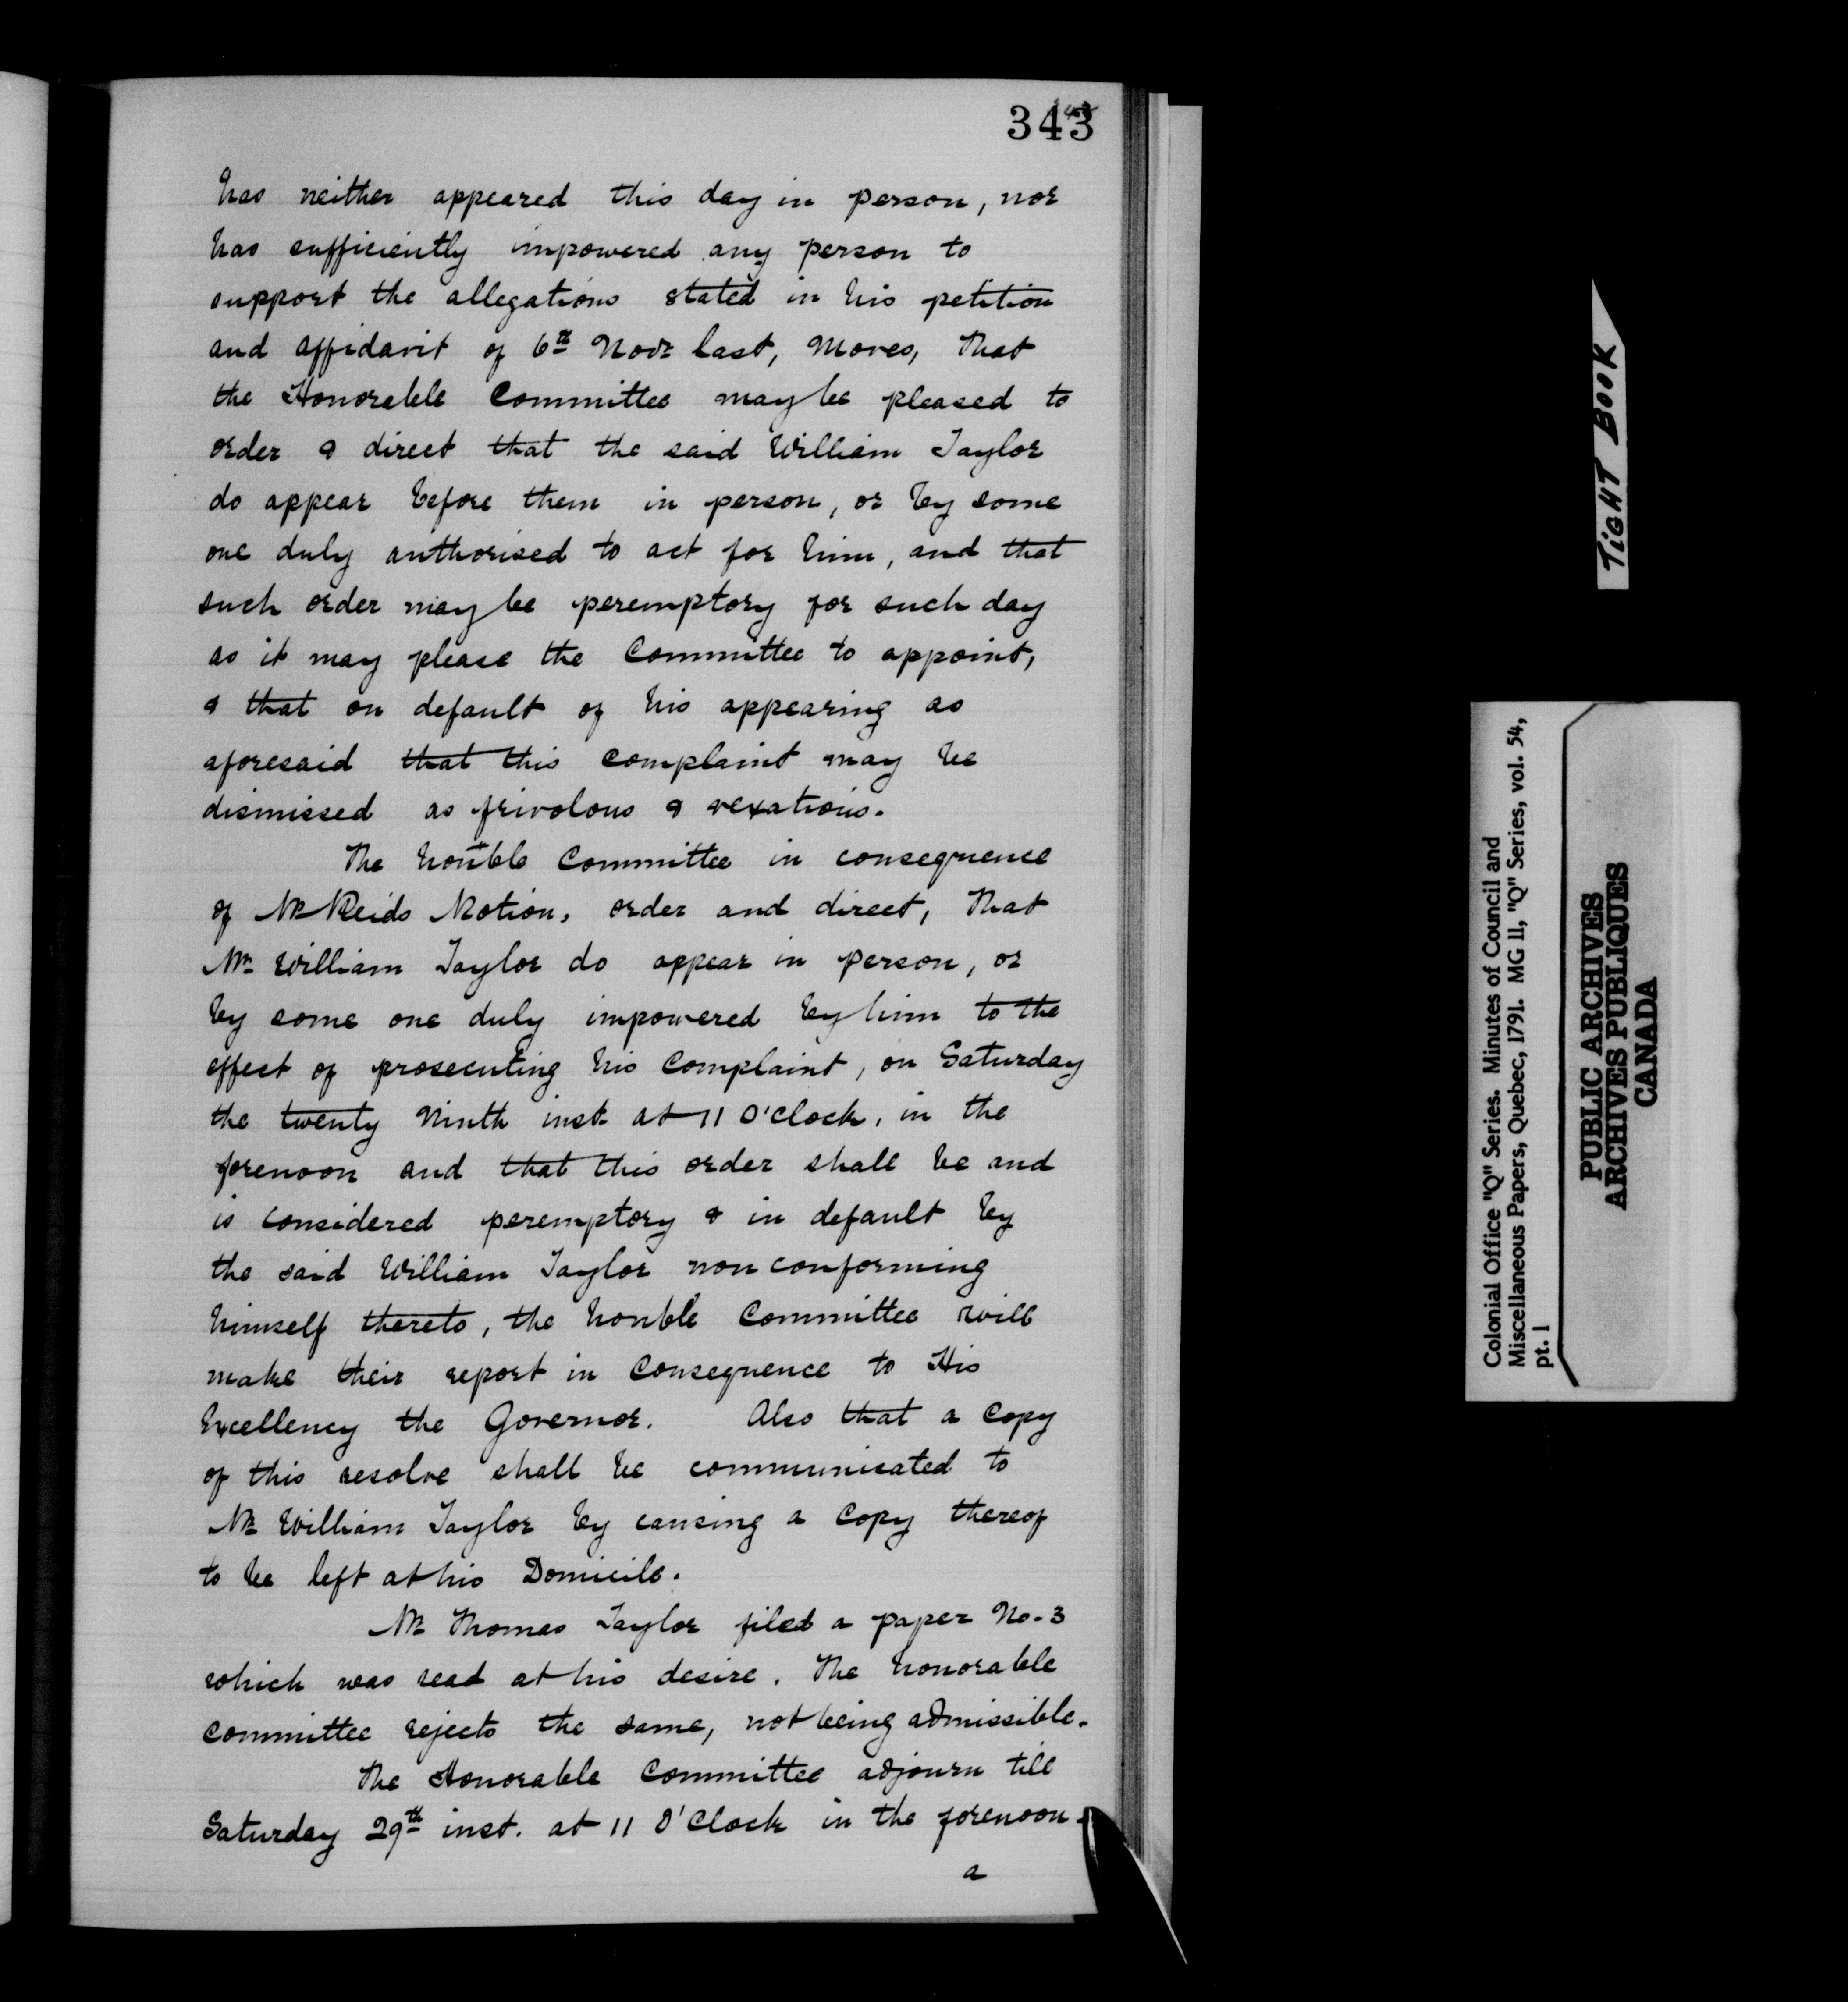 343
has neither appeared this day in person, nor
has sufficiently impowered any person to
support the allegations stated in his petition
and affidavit of 6th Novr last, Moves, That
the Honorable Committee may be pleased to
order & direct that the said William Taylor
do appear before them in person, or by some
one duly authorised to act for him, and that
such order may be peremptory for such day
as it may please the Committee to appoint,
& that on default of his appearing as
aforesaid that this complaint may be
dismissed as frivolous & vexatious.
The honble Committee in consequence
of Mr Reids Motion, order and direct, That
Mr William Taylor do appear in person, or
by some one duly impowered by him to the
effect of prosecuting his Complaint, on Saturday
the twenty Ninth inst. at 11 O'Clock, in the
forenoon and that this order shall be and
is considered peremptory & in default by
the said William Taylor non conforming
himself thereto, the honble Committee will
make their report in Consequence to His
Excellency the Governor. Also that a Copy
of this resolve shall be communicated to
Mr William Taylor by causing a Copy thereof
to be left at his Domicile.
Mr Thomas Taylor filed a paper No. 3
which was read at his desire. The honorable
Committee rejects the same, not being admissible.
The Honorable Committee adjourn till
Saturday 29th inst. at 11 O'Clock in the forenoon.
a
TIGHT BOOK
Colonial Office "Q" Series. Minutes of Council and
Miscellaneous Papers, Quebec, 1791. MG 11, "Q" Series, vol. 54,
pt. 1
PUBLIC ARCHIVES
ARCHIVES PUBLIQUES
CANADA